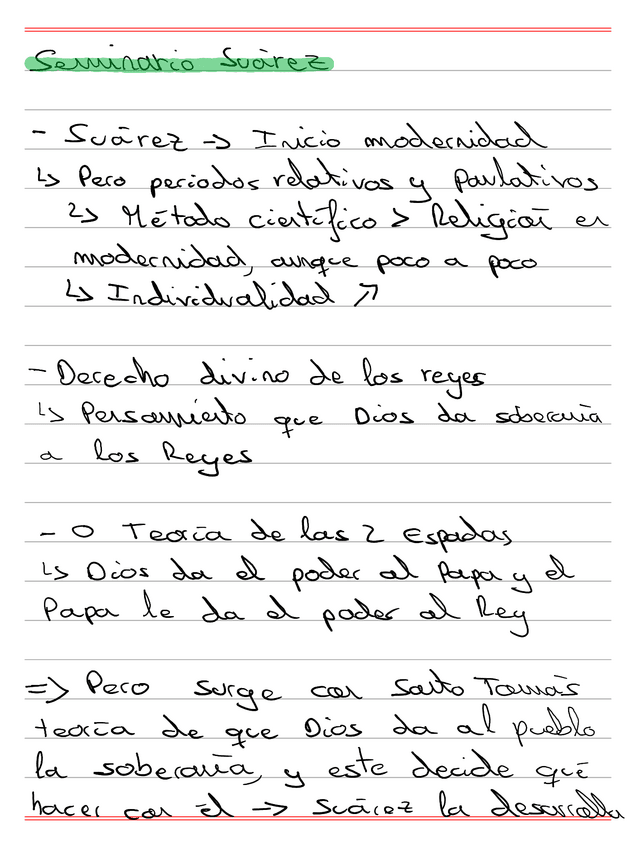 Seminario Suárez
- Suárez -> Inicio modernidad
↳ Pero periodos relativos y paulativos
↳ Método científico > Religión en
modernidad, aunque poco a poco
↳ Individualidad ↗
- Derecho divino de los reyes
↳ Pensamiento que Dios da soberanía
a los Reyes
- O Teoría de las 2 Espadas
↳ Dios da el poder al Papa y el
Papa le da el poder al Rey
=> Pero surge con Santo Tomás
teoría de que Dios da al pueblo
la soberanía, y este decide qué
hacer con él -> Suárez la desarrolla